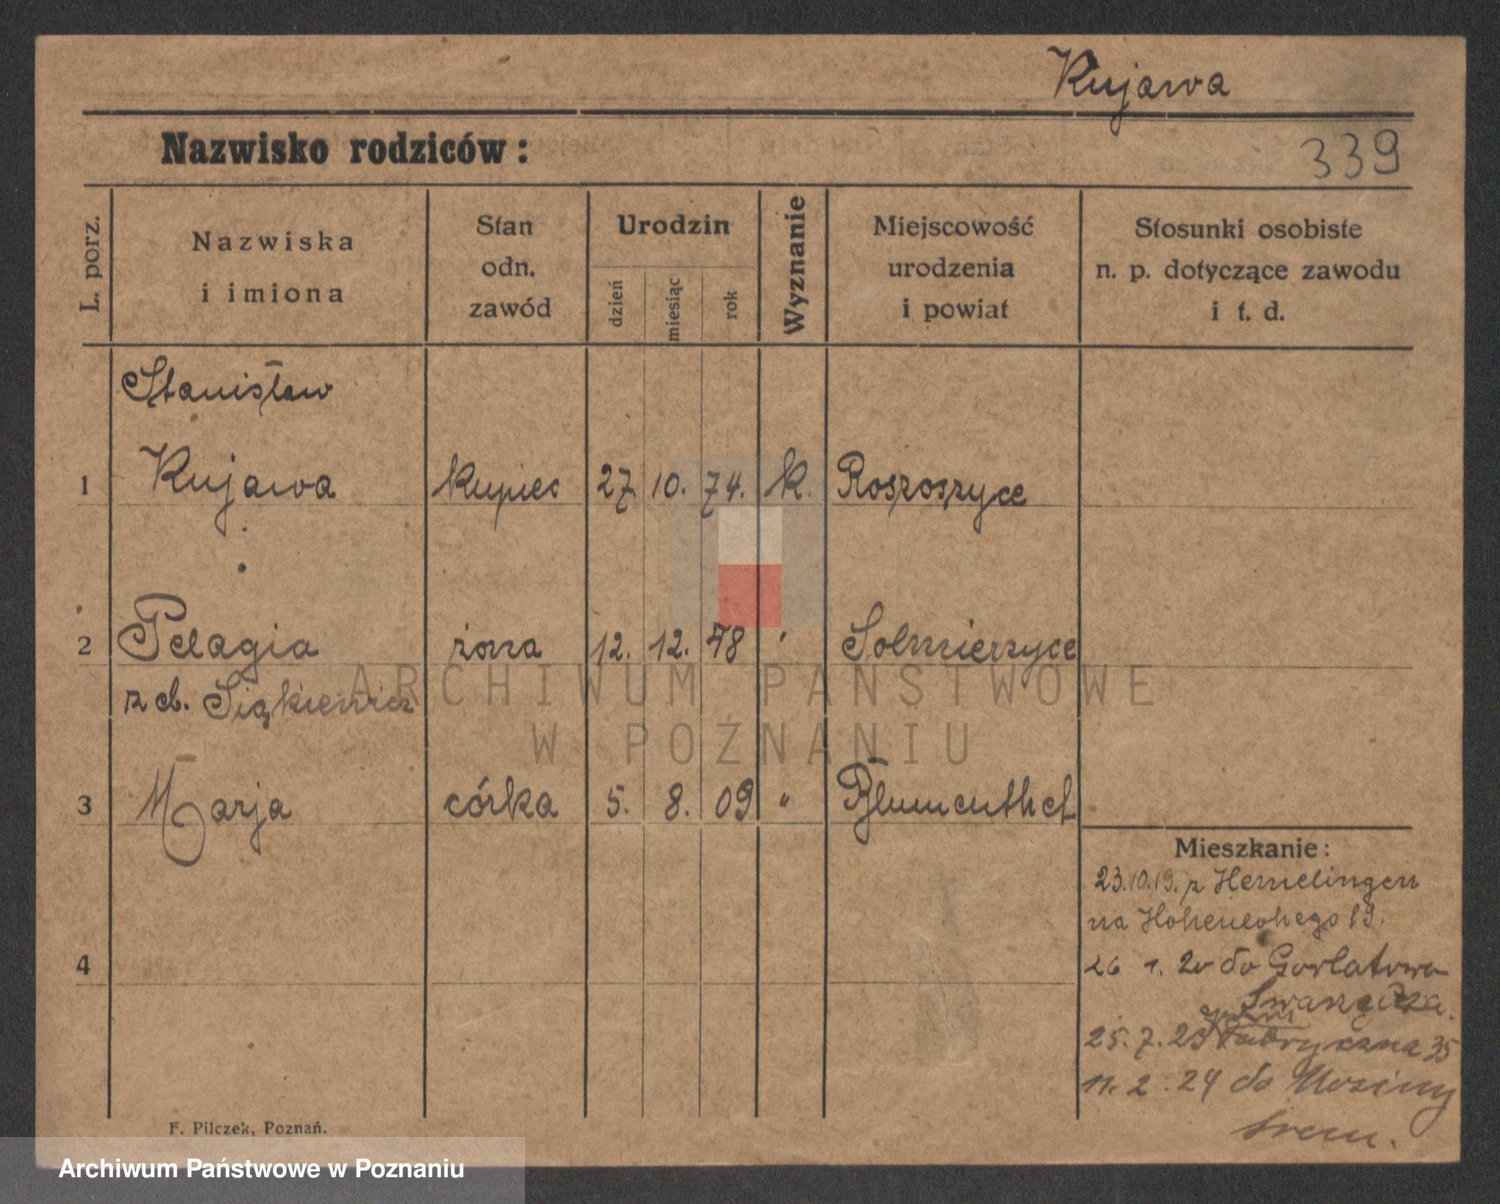 Kujawa
Nazwisko rodziców:
339
L. porz.
Nazwiska
i imiona
Stan
odn.
zawód
Urodzin
dzień
miesiąc
rok
Wyznanie
Miejscowość
urodzenia
i powiat
Stosunki osobiste
n. p. dotyczące zawodu
i t. d.
Stanisław
1 Kujawa kupiec 27. 10. 74. k. Roszoszyce
2 Pelagia żona 12. 12. 78 " Solmierzyce
z d. Siąkiewicz
3 Marja córka 5. 8. 09 " Blumenthal
4
Mieszkanie:
23.10.19. z Hemelingen
na Hohenlohego 19.
26 1. 20 do Gorlatowa
Swarzędza.
25. 7. 23 Fabryczna 35
11. 2. 24 do
Śrem.
F. Pilczek, Poznań.
ARCHIWUM PAŃSTWOWE
W POZNANIU
Archiwum Państwowe w Poznaniu